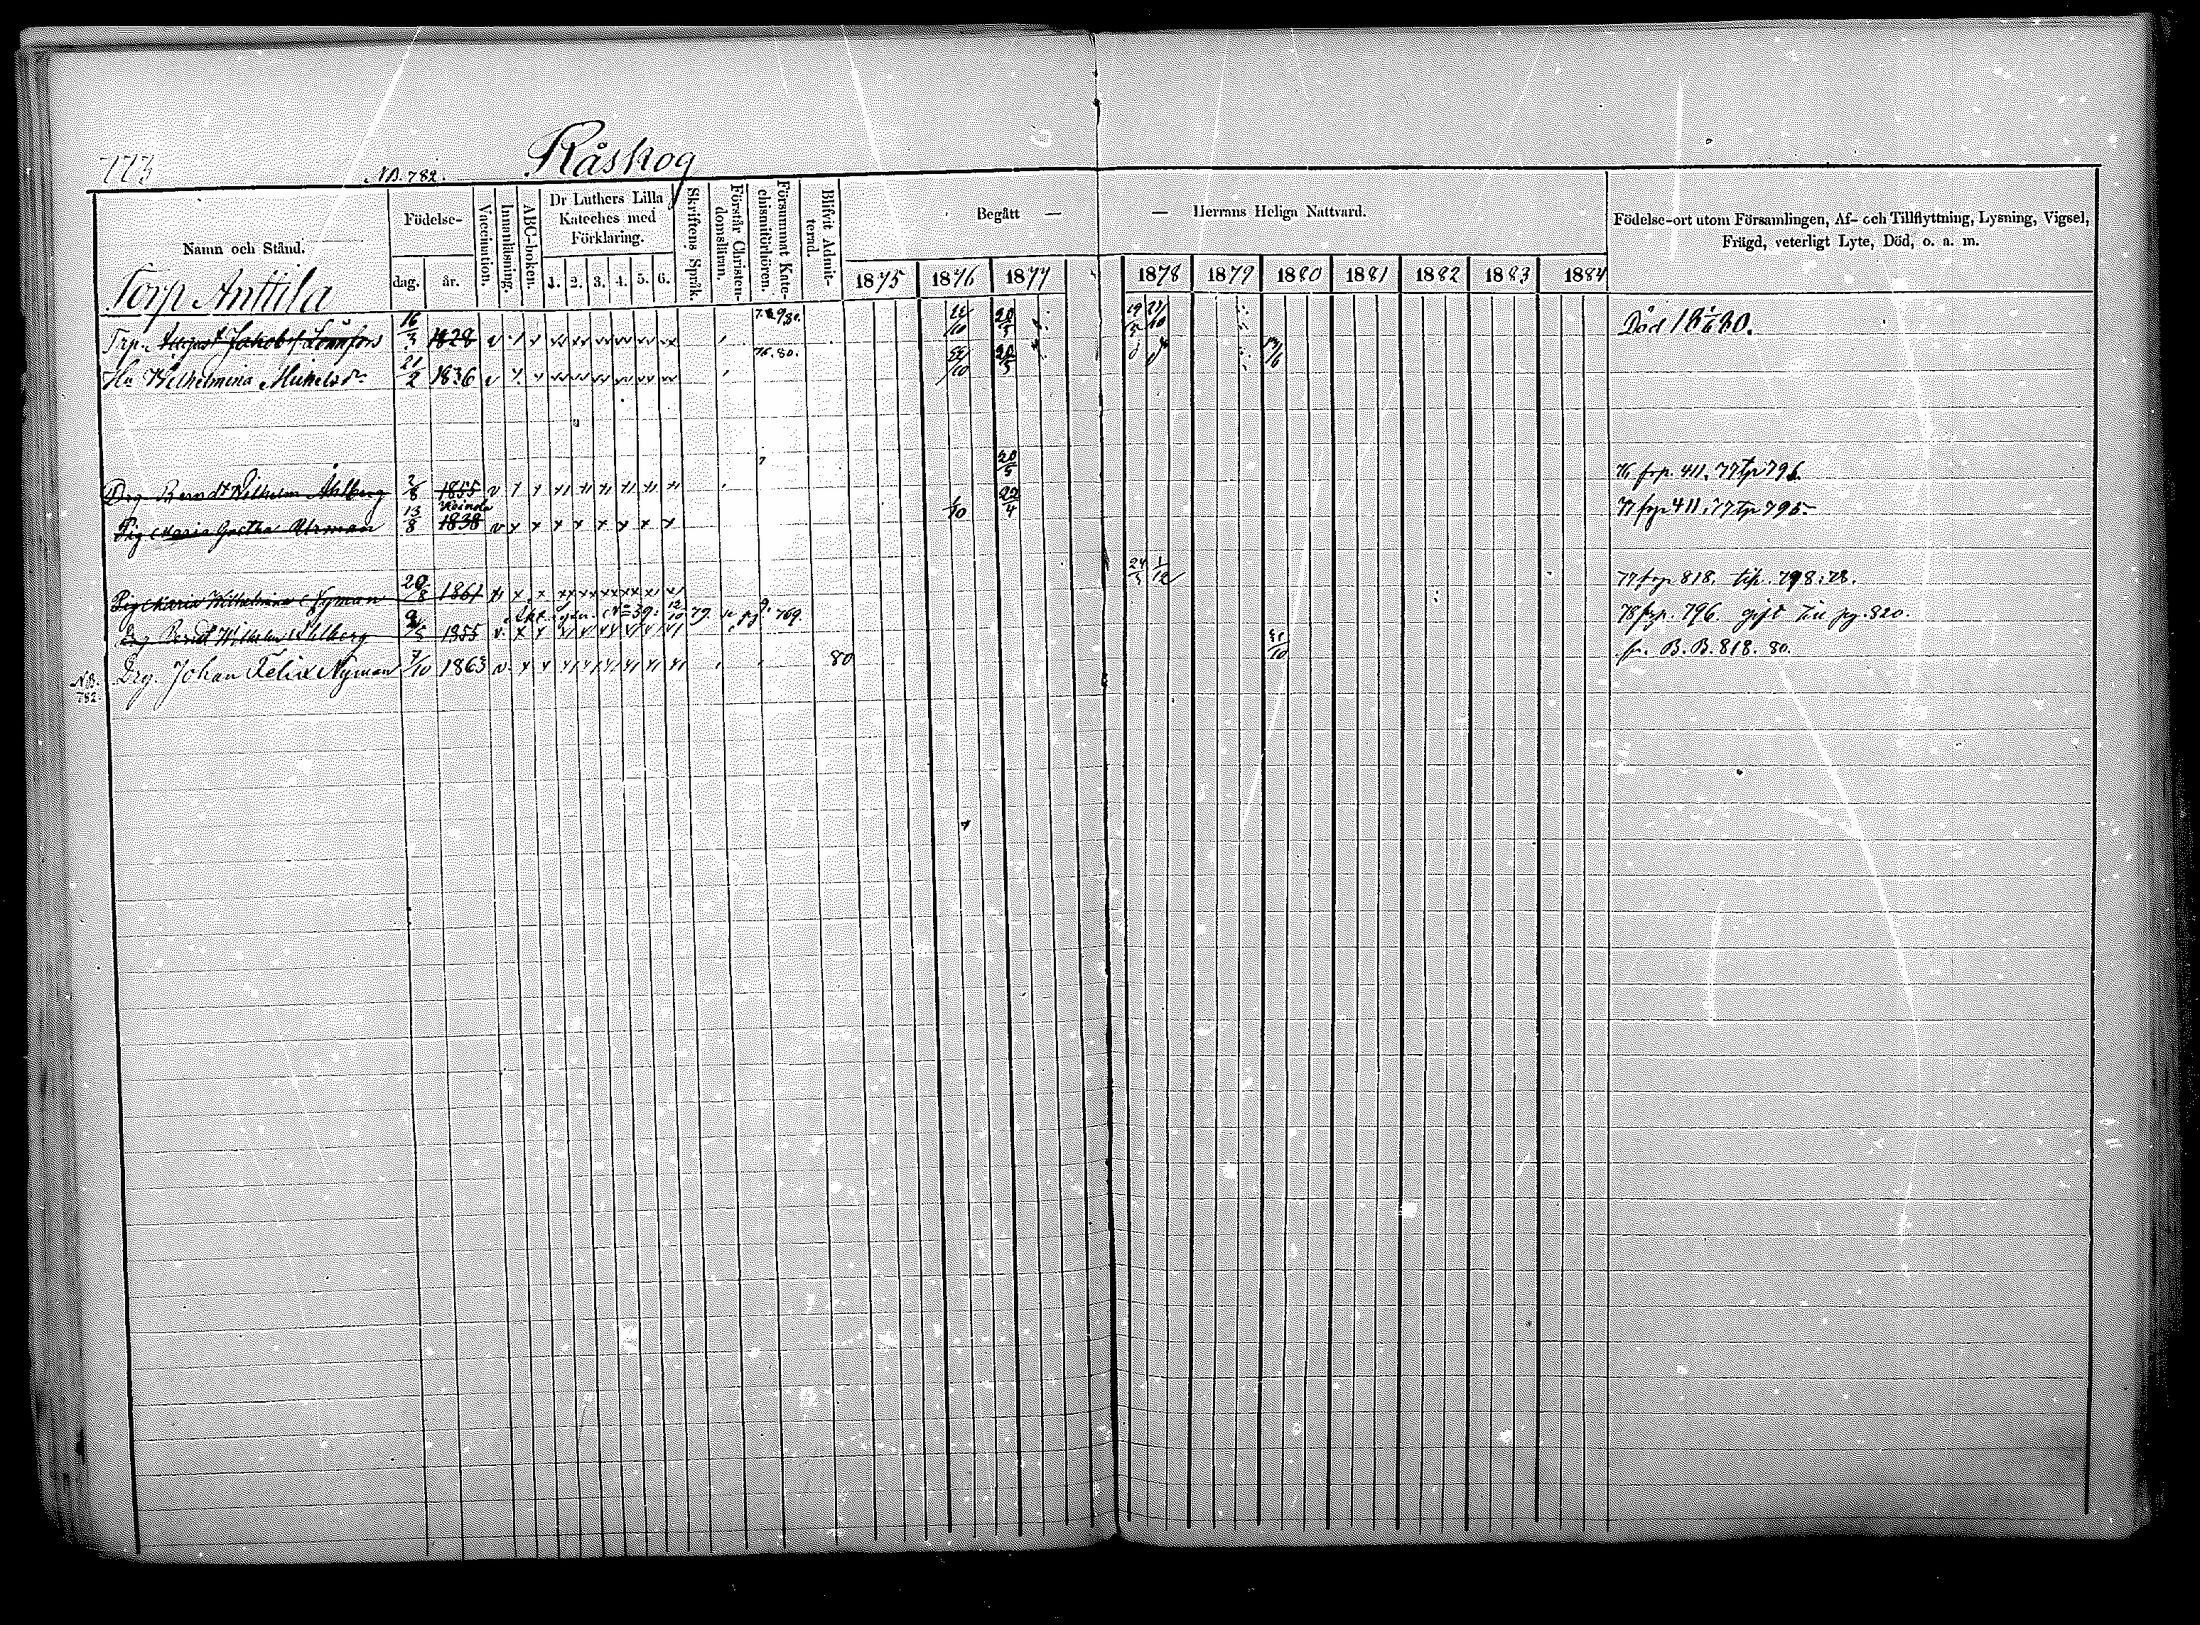 773
NB. 782.
Råskog
Namn och Stånd.
Födelse-
dag.
år.
Vaccination.
Innanläsning.
ABC-boken.
Dr Luthers Lilla
Kateches med
Förklaring.
1. 2. 3. 4. 5. 6.
Skriftens Språk.
Förstår Christen-
domsläran.
Försummat Kate-
chismiförhören.
Blifvit Admit-
terad.
Begått —
— Herrans Heliga Nattvard.
1875 1876 1877 1878 1879 1880 1881 1882 1883 1884
Födelse-ort utom Församlingen, Af- och Tillflyttning, Lysning, Vigsel,
Frägd, veterligt Lyte, Död, o. a. m.
Torp Anttila
Trp. August Jakobsf. Lönnfors 16/3 1828 22/10 20/5 Död 18 1/6 80.
Hu Wilhelmina Mickelsdr 21/2 1836 76. 80. 22/10 20/5
Drg Berndt Wilhelm Ahlberg 2/8 1855 20/5 76 frp. 411. 77 tp 796.
Pig Maria Gretha Urman 13/8 1838 1/10 22/4 77 frp 411. 77 tp 795
Pig Maria Wilhelmina Nyman 20/8 1861 24/3 1/12 77 frp 818. tip. 798. 78.
Akt. gen. N=39. 12/10 79. pg. 769.
Drg Berndt Wilhelm Ahlberg 1855 78 frp. 796. gift pg. 820.
NB.
782.
Drg. Johan Felix Nyman 7/10 1863 80 31/10 fr. B.B. 818. 80.